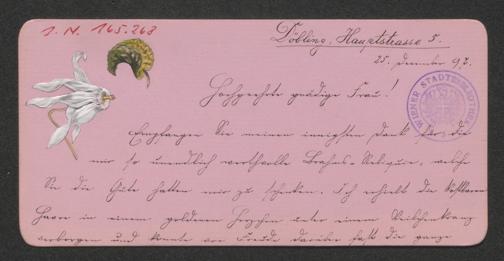 J. N. 165.268
Döbling, Hauptstrasse 5.
25. December 97.
Hochgeehrte gnädige Frau!
WIENER STADTBIBLIOTHEK
Empfangen Sie meinen innigsten Dank für die
mir so unendlich werthvolle Brahms-Reliquie, welche
Sie die Güte hatten mir zu schenken. Ich erhielt die kostbaren
Haare in einem goldenen Herzchen unter einem Veilchenkranz
verborgen und konnte vor Freude darüber fast die ganze